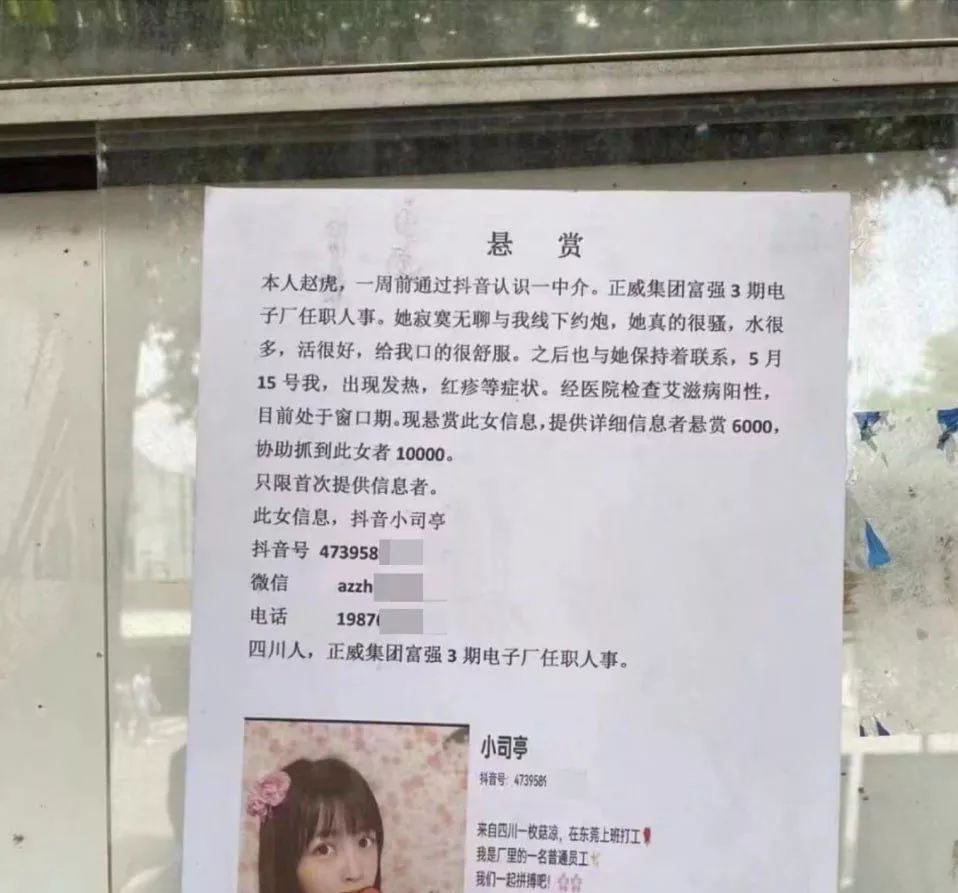 悬 赏
本人赵虎，一周前通过抖音认识一中介。正威集团富强 3 期电
子厂任职人事。她寂寞无聊与我线下约炮，她真的很骚，水很
多，活很好，给我口的很舒服。之后也与她保持着联系，5 月
15 号我，出现发热，红疹等症状。经医院检查艾滋病阳性，
目前处于窗口期。现悬赏此女信息，提供详细信息者悬赏 6000，
协助抓到此女者 10000。
只限首次提供信息者。
此女信息，抖音小司亭
抖音号 473958
微信 azzh
电话 1987
四川人，正威集团富强 3 期电子厂任职人事。
小司亭
抖音号：473958
来自四川一枚菇凉，在东莞上班打工
我是厂里的一名普通员工
我们一起拼搏吧！